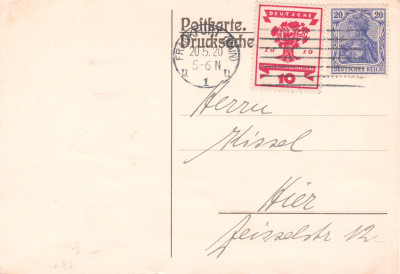 Postkarte.
Drucksache
FRANKFURT (MAIN)
20.5.20
5-6 N
1
DEUTSCHE
19 19
10
20 20
DEUTSCHES REICH
Herrn
Kissel
Hier
Zeisselstr 12